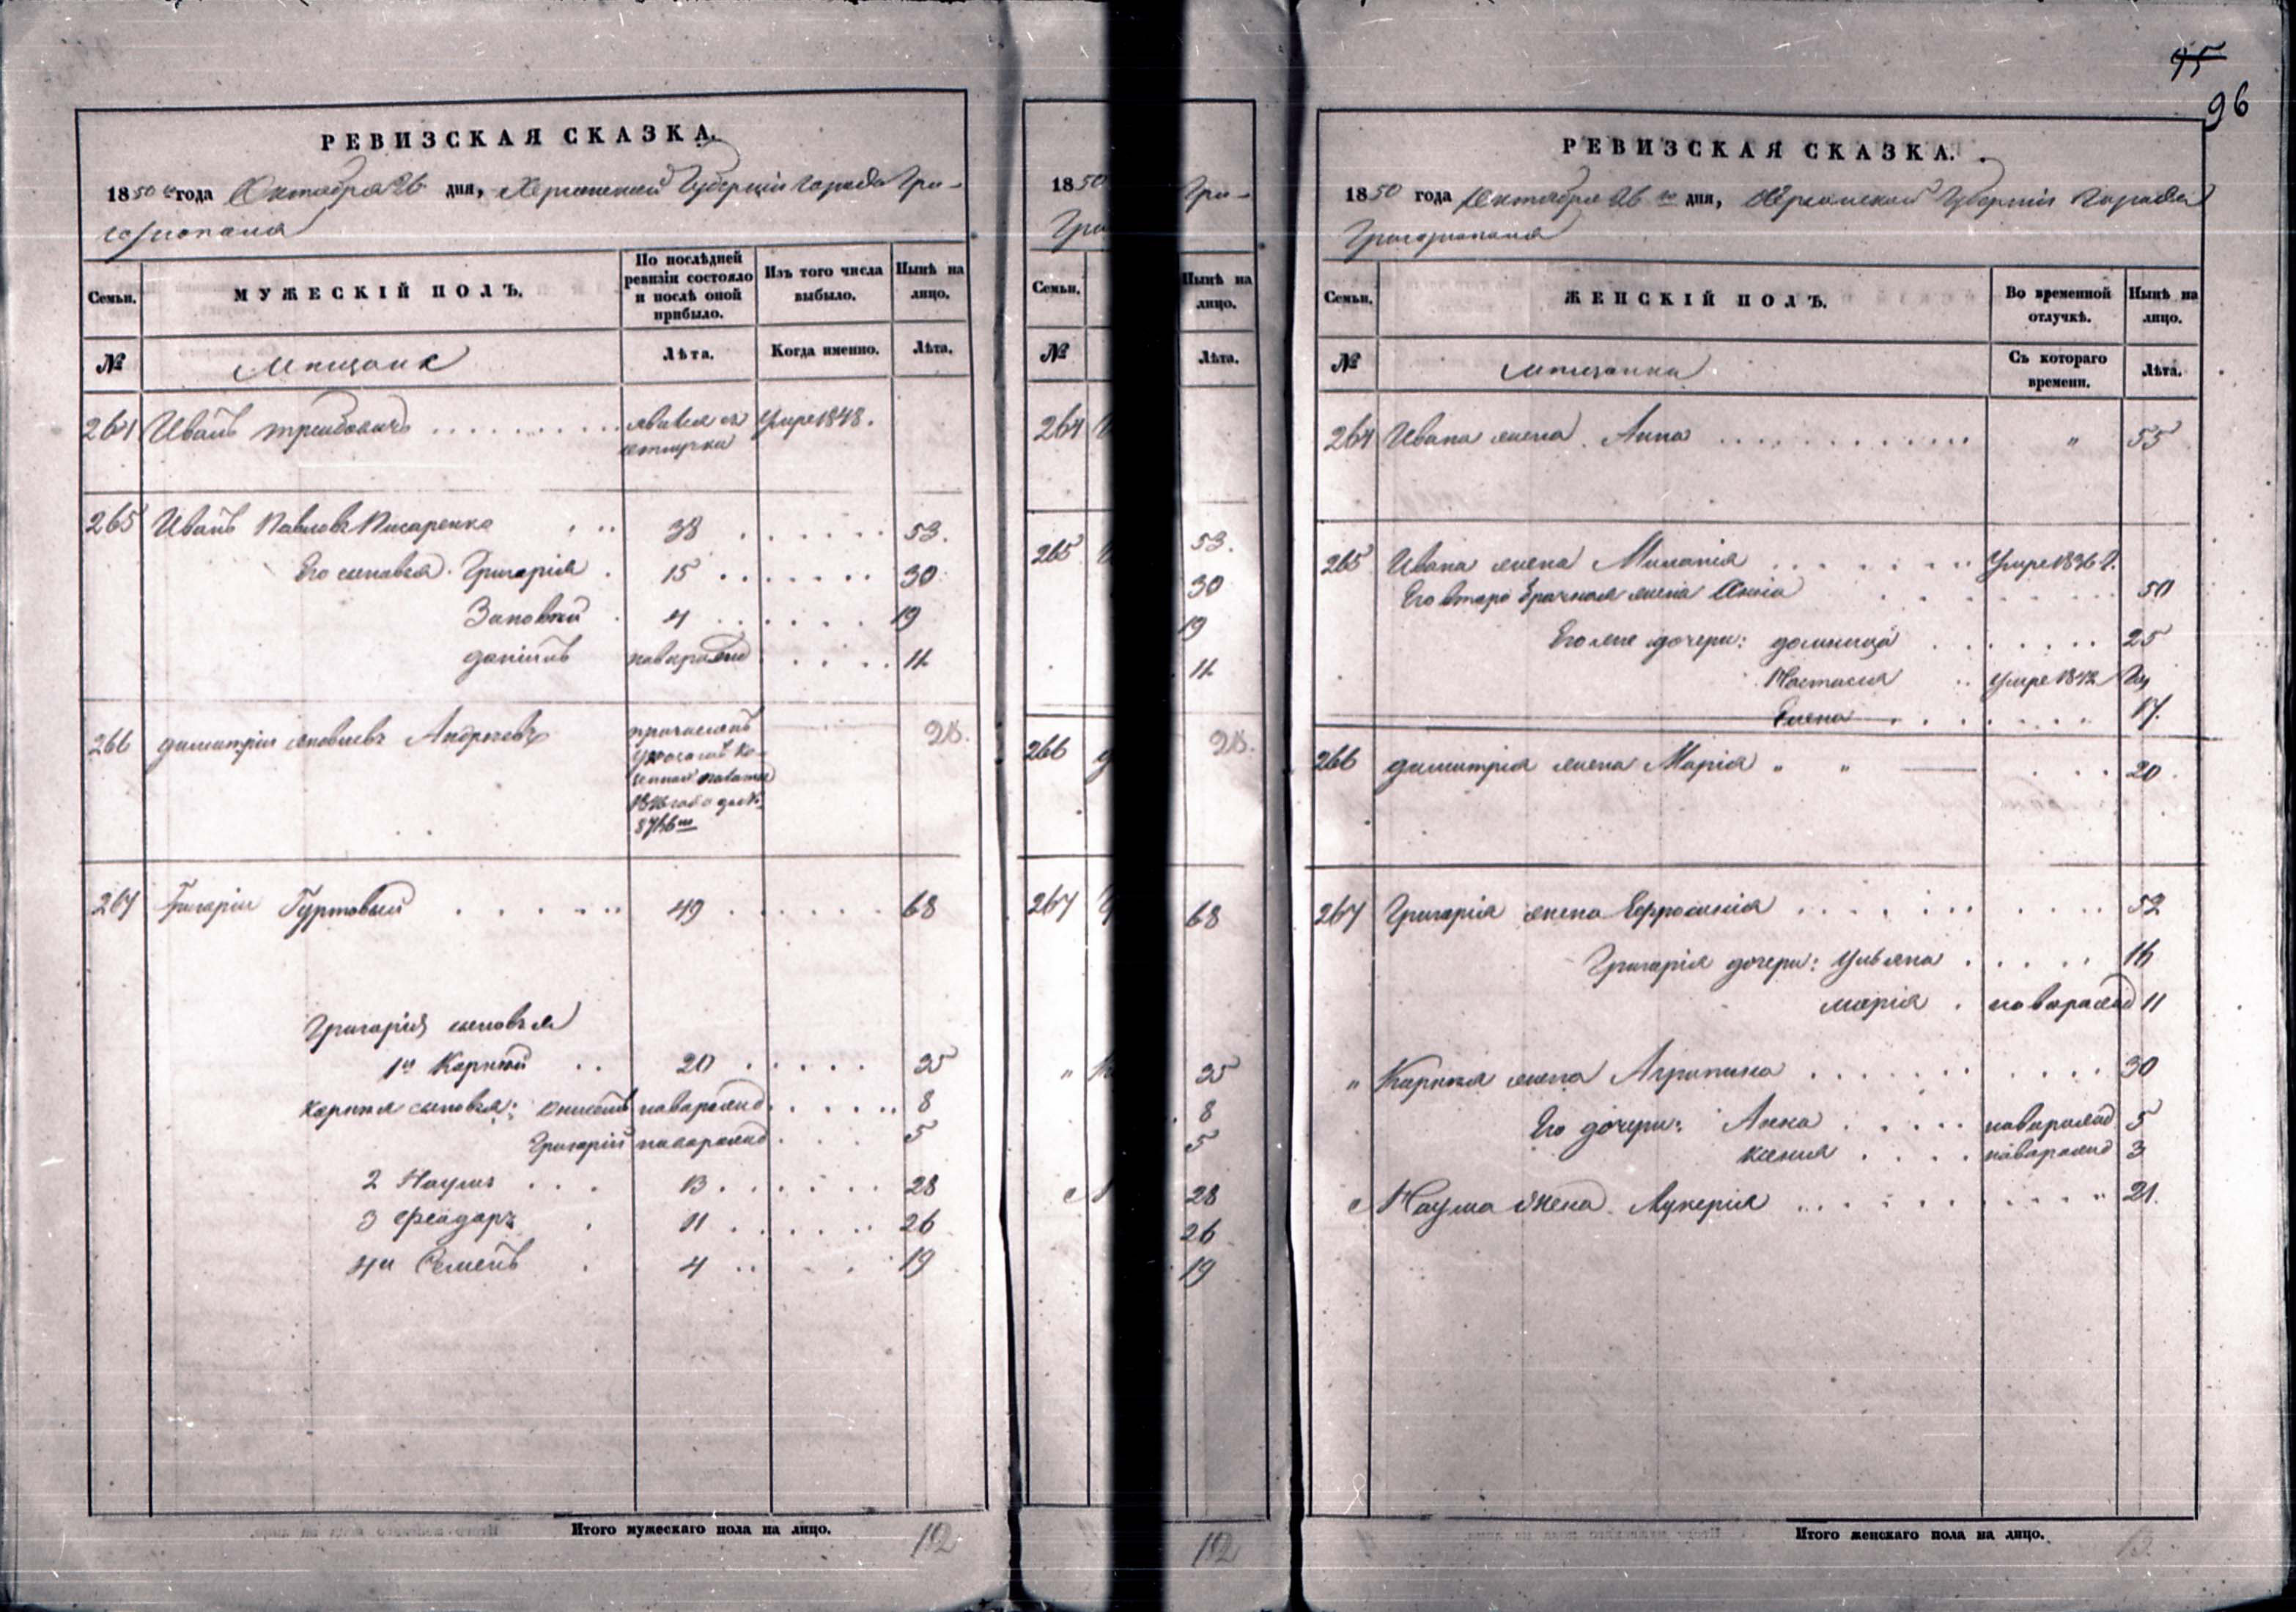 РЕВИЗСКАЯ СКАЗКА.
1850 года Октября 26 дня, Херсонской Губерніи города Гри-
горіополя
Семьи. МУЖЕСКІЙ ПОЛЪ. По послѣдней ревизіи состояло и послѣ оной прибыло. Изъ того числа выбыло. Нынѣ на лицо.
№ Мѣщане Лѣта. Когда именно. Лѣта.
264 Иванъ явился съ Умре 1848.
отлучки
265 Иванъ Павловъ Писаренко 38 53.
Его сыновья Григорій 15 30
Зиновій 4 19
Даніилъ новорожд 11
266 Димитрій Яковлевъ Андреевъ причисленъ 28.
267 Григорій Гуртовый 49 68
Григорія сыновья
1й Карпій 20 35
Карпія сыновья: новорожд 8
Григорій новорожд 5
2 Наумъ 13 28
3 Феодоръ 11 26
4й Семенъ 4 19
Итого мужескаго пола на лицо. 12
1850 Гри-
Гри
Семьи. Нынѣ на лицо.
№ Лѣта.
264
265 53.
30
19
11
266 28.
267 68
35
8
5
28
26
19
12
95
96
РЕВИЗСКАЯ СКАЗКА.
1850 года Октября 26 го дня, Херсонской Губерніи города
Григоріополя
Семьи. ЖЕНСКІЙ ПОЛЪ. Во временной отлучкѣ. Нынѣ на лицо.
№ Мѣщанки Съ котораго времени. Лѣта.
264 Ивана жена Анна " 55
265 Ивана жена Меланія Умре 1836 г.
Его второбрачная жена 50
Его же дочери: Домникія 25
Настасия Умре 1842
Елена 17.
266 Димитрія жена Марія " " 20
267 Григорія жена Ефросинія 52
Григорія дочери: Ульяна 16
Марія новорожд 11
" Карпія жена Агрипина 30
Его дочери: Анна новорожд 5
Ксения новорожд 3
Наума жена Лукерія 21.
Итого женскаго пола на лицо.